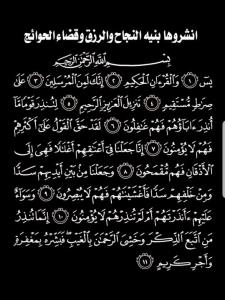 انشروها بنيه النجاح والرزق وقضاء الحوائج
بِسْمِ اللَّهِ الرَّحْمَٰنِ الرَّحِيمِ
يسٓ ١ وَالْقُرْءَانِ الْحَكِيمِ ٢ إِنَّكَ لَمِنَ الْمُرْسَلِينَ ٣ عَلَىٰ
صِرَٰطٍ مُّسْتَقِيمٍ ٤ تَنزِيلَ الْعَزِيزِ الرَّحِيمِ ٥ لِتُنذِرَ قَوْمًا مَّا
أُنذِرَ ءَابَآؤُهُمْ فَهُمْ غَٰفِلُونَ ٦ لَقَدْ حَقَّ الْقَوْلُ عَلَىٰٓ أَكْثَرِهِمْ
فَهُمْ لَا يُؤْمِنُونَ ٧ إِنَّا جَعَلْنَا فِىٓ أَعْنَٰقِهِمْ أَغْلَٰلًا فَهِىَ إِلَى
الْأَذْقَانِ فَهُم مُّقْمَحُونَ ٨ وَجَعَلْنَا مِنۢ بَيْنِ أَيْدِيهِمْ سَدًّا
وَمِنْ خَلْفِهِمْ سَدًّا فَأَغْشَيْنَٰهُمْ فَهُمْ لَا يُبْصِرُونَ ٩ وَسَوَآءٌ
عَلَيْهِمْ ءَأَنذَرْتَهُمْ أَمْ لَمْ تُنذِرْهُمْ لَا يُؤْمِنُونَ ١٠ إِنَّمَا تُنذِرُ
مَنِ اتَّبَعَ الذِّكْرَ وَخَشِىَ الرَّحْمَٰنَ بِالْغَيْبِ فَبَشِّرْهُ بِمَغْفِرَةٍ
وَأَجْرٍ كَرِيمٍ ١١